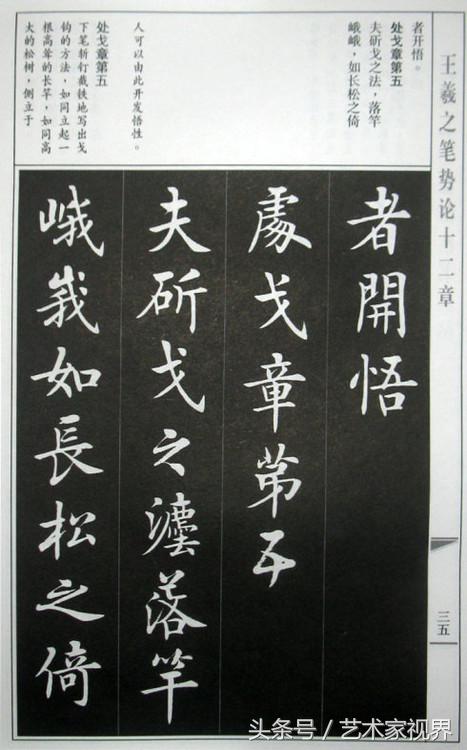 王羲之笔势论十二章
三五
者开悟。
处戈章第五
夫斫戈之法，落竿
峨峨，如长松之倚
人可以由此开发悟性。
处戈章第五
下笔斩钉截铁地写出戈
钩的方法，如同立起一
根高耸的长竿，如同高
大的松树，倒立于
者開悟
處戈章苐五
夫斫戈之灋落竿
峨峩如長松之倚
头条号／艺术家视界